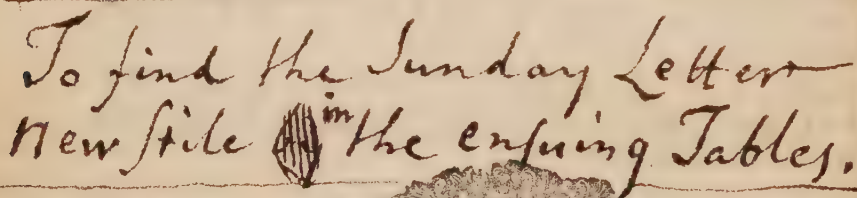 To find the Sunday Letter
new ſtile in the enſuing Tables.